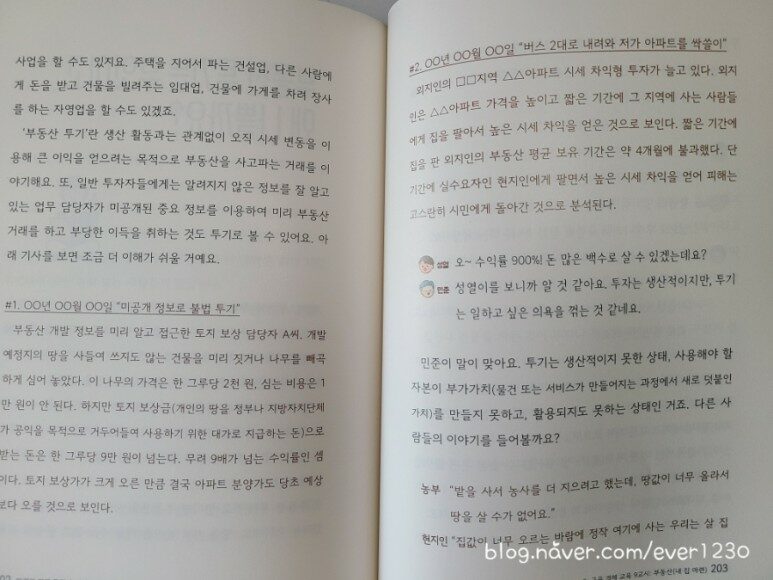 사업을 할 수도 있지요. 주택을 지어서 파는 건설업, 다른 사람에
게 돈을 받고 건물을 빌려주는 임대업, 건물에 가게를 차려 장사
를 하는 자영업을 할 수도 있겠죠.
'부동산 투기'란 생산 활동과는 관계없이 오직 시세 변동을 이
용해 큰 이익을 얻으려는 목적으로 부동산을 사고파는 거래를 이
야기해요. 또, 일반 투자자들에게는 알려지지 않은 정보를 잘 알고
있는 업무 담당자가 미공개된 중요 정보를 이용하여 미리 부동산
거래를 하고 부당한 이득을 취하는 것도 투기로 볼 수 있어요. 아
래 기사를 보면 조금 더 이해가 쉬울 거예요.
#1. OO년 OO월 OO일 "미공개 정보로 불법 투기"
부동산 개발 정보를 미리 알고 접근한 토지 보상 담당자 A씨. 개발
예정지의 땅을 사들여 쓰지도 않는 건물을 미리 짓거나 나무를 빼곡
하게 심어 놓았다. 이 나무의 가격은 한 그루당 2천 원, 심는 비용은 1
만 원이 안 된다. 하지만 토지 보상금(개인의 땅을 정부나 지방자치단체
가 공익을 목적으로 거두어들여 사용하기 위한 대가로 지급하는 돈)으로
받는 돈은 한 그루당 9만 원이 넘는다. 무려 9배가 넘는 수익률인 셈
이다. 토지 보상가가 크게 오른 만큼 결국 아파트 분양가도 당초 예상
보다 오를 것으로 보인다.
#2. OO년 OO월 OO일 "버스 2대로 내려와 저가 아파트를 싹쓸이"
외지인의 □□지역 △△아파트 시세 차익형 투자가 늘고 있다. 외지
인은 △△아파트 가격을 높이고 짧은 기간에 그 지역에 사는 사람들
에게 집을 팔아서 높은 시세 차익을 얻은 것으로 보인다. 짧은 기간에
집을 판 외지인의 부동산 평균 보유 기간은 약 4개월에 불과했다. 단
기간에 실수요자인 현지인에게 팔면서 높은 시세 차익을 얻어 피해는
고스란히 시민에게 돌아간 것으로 분석된다.
성열 오~ 수익률 900%! 돈 많은 백수로 살 수 있겠는데요?
민준 성열이를 보니까 알 것 같아요. 투자는 생산적이지만, 투기
는 일하고 싶은 의욕을 꺾는 것 같네요.
민준이 말이 맞아요. 투기는 생산적이지 못한 상태, 사용해야 할
자본이 부가가치(물건 또는 서비스가 만들어지는 과정에서 새로 덧붙인
가치)를 만들지 못하고, 활용되지도 못하는 상태인 거죠. 다른 사
람들의 이야기를 들어볼까요?
농부 "밭을 사서 농사를 더 지으려고 했는데, 땅값이 너무 올라서
땅을 살 수가 없어요."
현지인 "집값이 너무 오르는 바람에 정작 여기에 사는 우리는 살 집
경제 교육 9교시: 부동산(내 집 마련) 203
blog.naver.com/ever1230